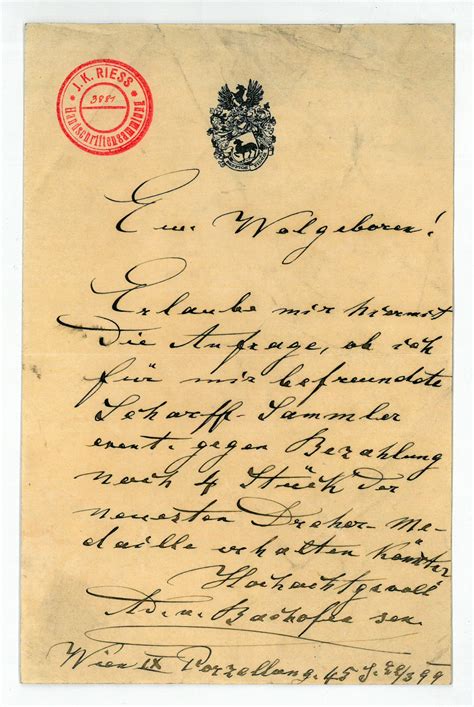 J. K. RIESS
3881
Handschriftensammlung
Euer Wolgeboren!
Erlaube mir hiermit
die Anfrage, ob ich
für mir befreundete
Scharff-Sammler
event. gegen Bezahlung
noch 4 Stück der
neuesten Dreher-Me-
daille erhalten könnte
Hochachtgsvoll
Ad. v. Bachofen sen.
Wien IX Porzellang. 45 /3 99